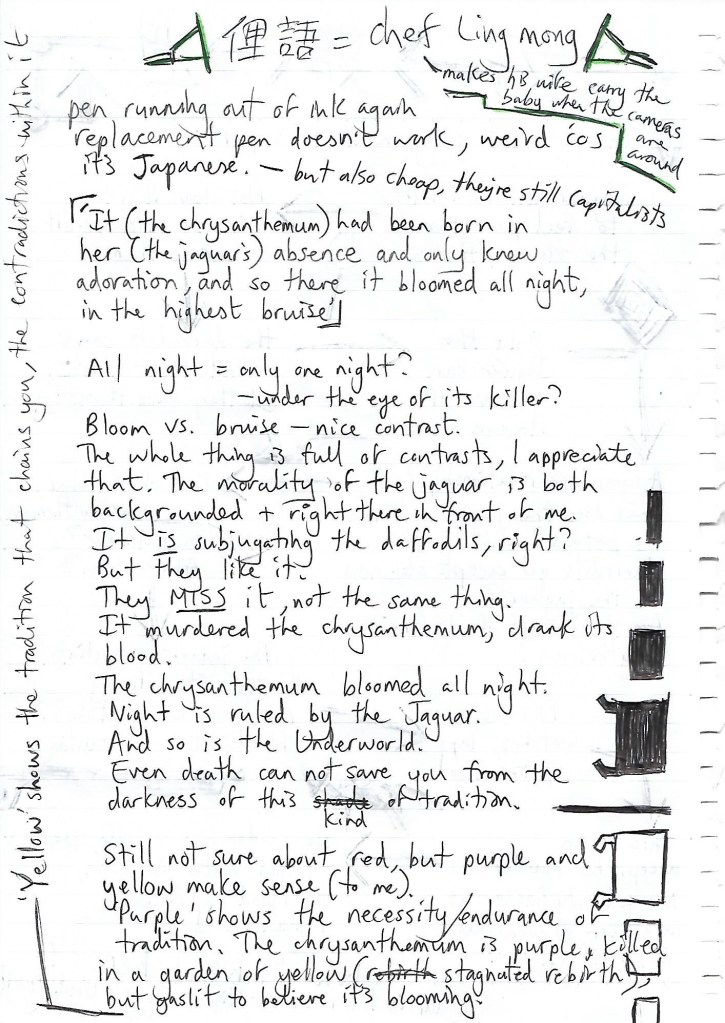 俚語 = chef Ling mong
makes his wife carry the
baby when the cameras
are
around
pen running out of ink again
replacement pen doesn't work, weird 'cos
it's Japanese. – but also cheap, they're still capitalists
「It (the chrysanthemum) had been born in
her (the jaguar's) absence and only knew
adoration, and so there it bloomed all night,
in the highest bruise」
All night = only one night?
– under the eye of its killer?
Bloom vs. bruise – nice contrast.
The whole thing is full of contrasts, I appreciate
that. The morality of the jaguar is both
backgrounded + right there in front of me.
It is subjugating the daffodils, right?
But they like it.
They MISS it, not the same thing.
It murdered the chrysanthemum, drank its
blood.
The chrysanthemum bloomed all night.
Night is ruled by the Jaguar.
And so is the Underworld.
Even death can not save you from the
darkness of this shade of tradition.
kind
Still not sure about red, but purple and
yellow make sense (to me).
'Purple' shows the necessity/endurance of
tradition. The chrysanthemum is purple, killed
in a garden of yellow (rebirth stagnated rebirth),
but gaslit to believe it's blooming.
'Yellow' shows the tradition that chains you, the contradictions within it